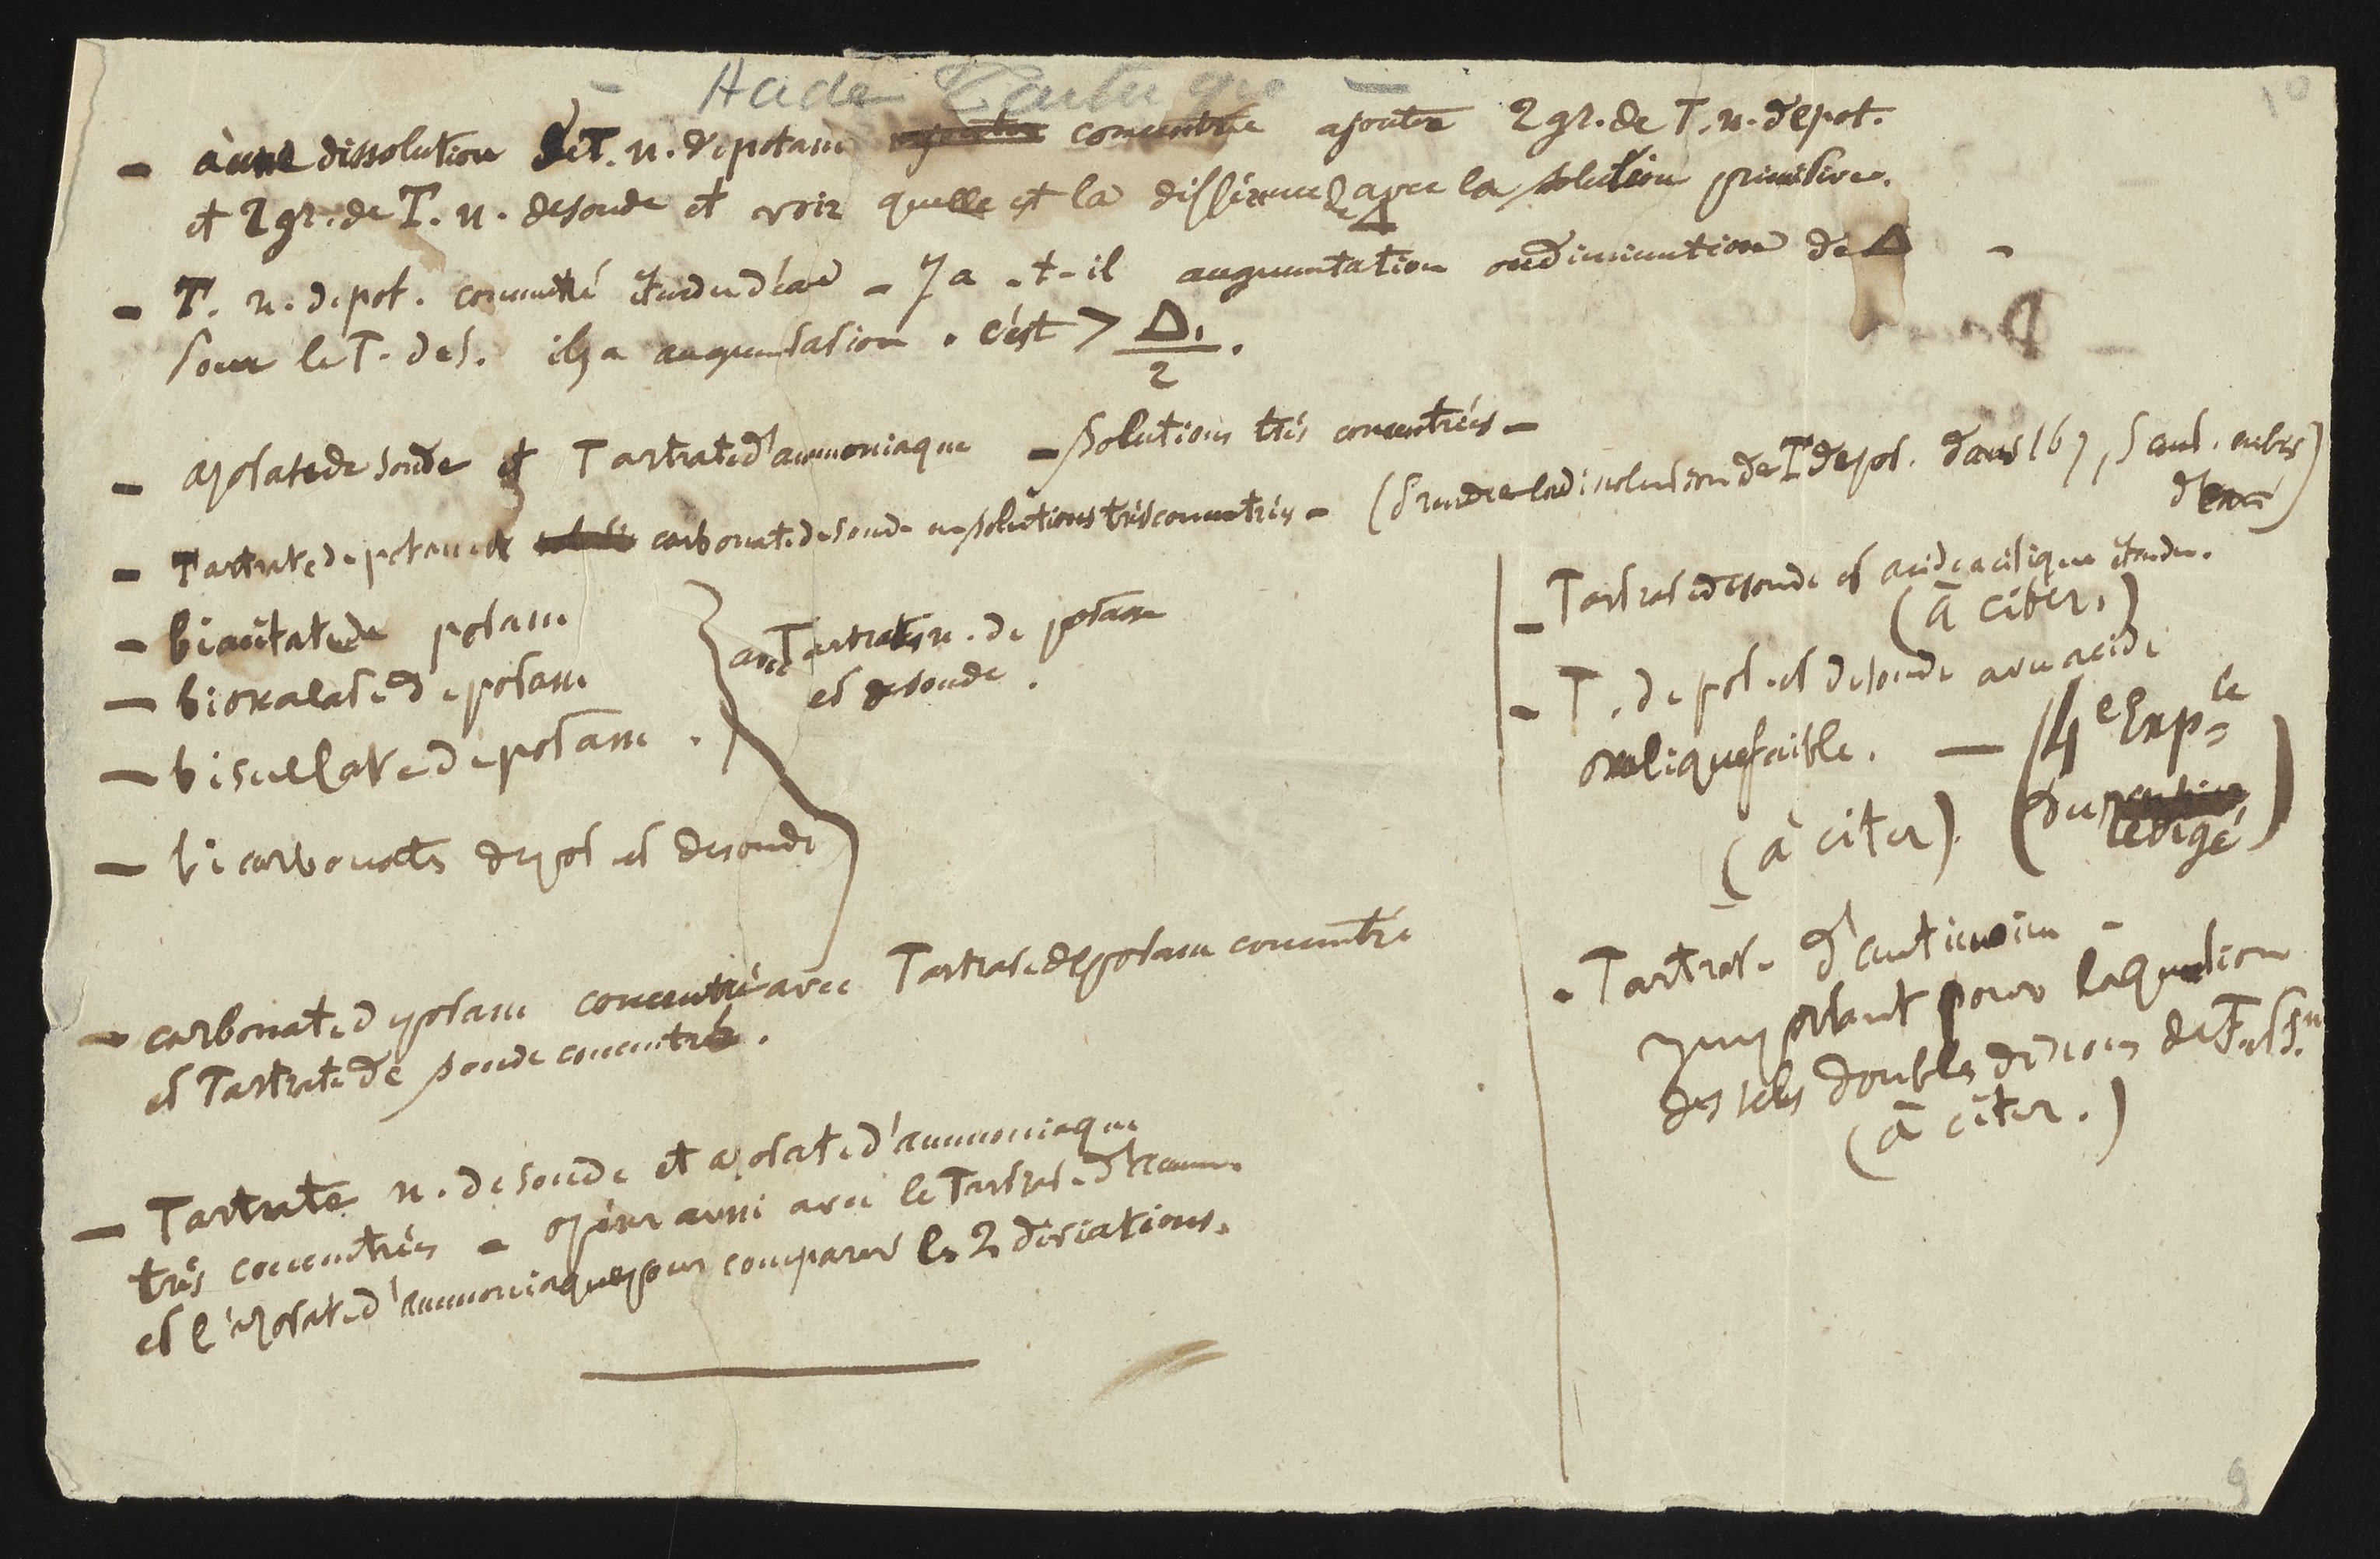 - Acide Tartrique -
- à une dissolution de T. n. de potasse concentrée ajouter 2 gr. de T. n. de pot.
et 2 gr. de T. n. de soude et voir quelle est la différence de Δ avec la solution primitive.
- T. n. de pot. concentré étendu d'eau - Y a-t-il augmentation ou diminution de Δ -
Pour le T. de S. il y a augmentation. c'est > Δ,/2.
- azotate de soude et Tartrate d'ammoniaque - Solutions très concentrées -
- Tartrate de potasse et carbonate de soude en solutions très concentrées - (Prendre la dissolution de T de pot. dans 167, 5 cent. cubes
d'eau)
- biacétate de potasse
- bioxalate de potasse
- bisulfate de potasse.
- bicarbonates de pot et de soude
avec Tartrates n. de potasse
et de soude.
- carbonate de potasse concentré avec Tartrate de potasse concentré
et Tartrate de soude concentré.
- Tartrate n. de soude et azotate d'ammoniaque
très concentrés - opérer aussi avec le Tartrate d'amm.
et l'azotate d'ammoniaque pour comparer les 2 déviations.
- Tartrate de soude et acide acétique étendu.
(à citer.)
- T. de pot. et de soude avec acide
oxalique faible. - (4e Expce
du rédigé)
(à citer).
- Tartrate d'antimoine -
Important pour la question
des sels doubles
(à citer.)
10
9